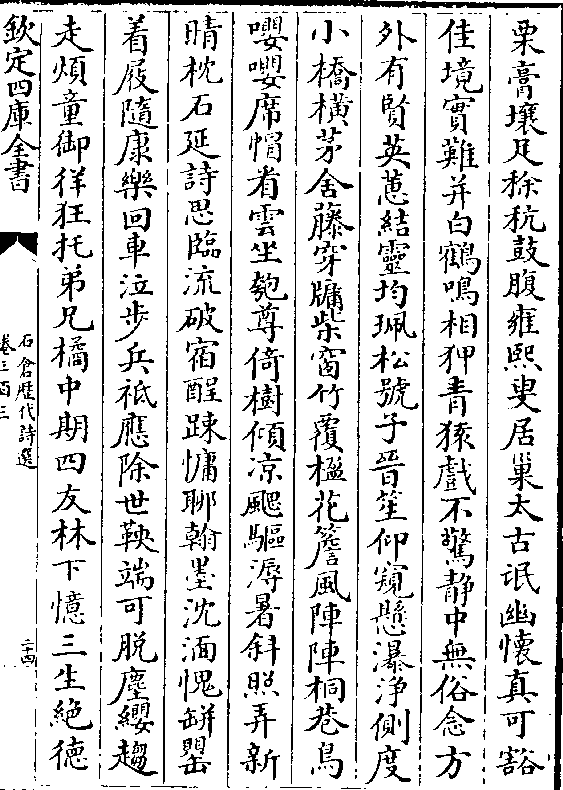 粟膏壤足稌秔鼓腹雍熙叟居巢太古氓幽懷真可豁
佳境實難并白鶴鳴相狎青猿戲不驚静中無俗念方
外有賢英蕙結靈均珮松號子晋笙仰窺懸瀑浄側度
小橋橫茅舍藤穿牖柴窗竹覆楹花簷風陣陣桐巷鳥
嚶嚶席帽看雲坐匏尊倚樹傾凉飔驅溽暑斜照弄新
晴枕石延詩思臨流破宿酲踈慵聊翰墨沈湎愧缾罌
着屐隨康樂回車泣步兵祇應除世鞅端可脱塵纓趨
走煩童御徉狂托弟兄橘中期四友林下憶三生絶德
欽定四庫全書
石倉歴代詩選
卷三百三
二十四